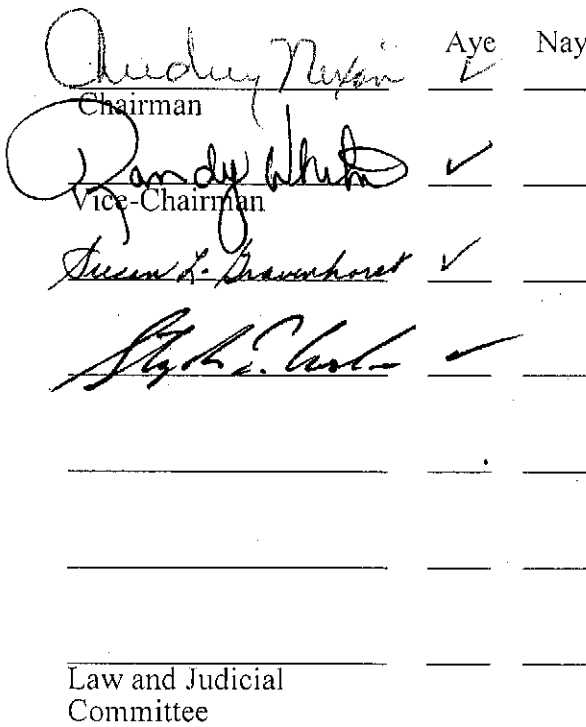 Aye Nay
Audrey Nixon ✓
Chairman
Randy Whit ✓
Vice-Chairman
Susan L. Gravenhorst ✓
✓
Law and Judicial
Committee